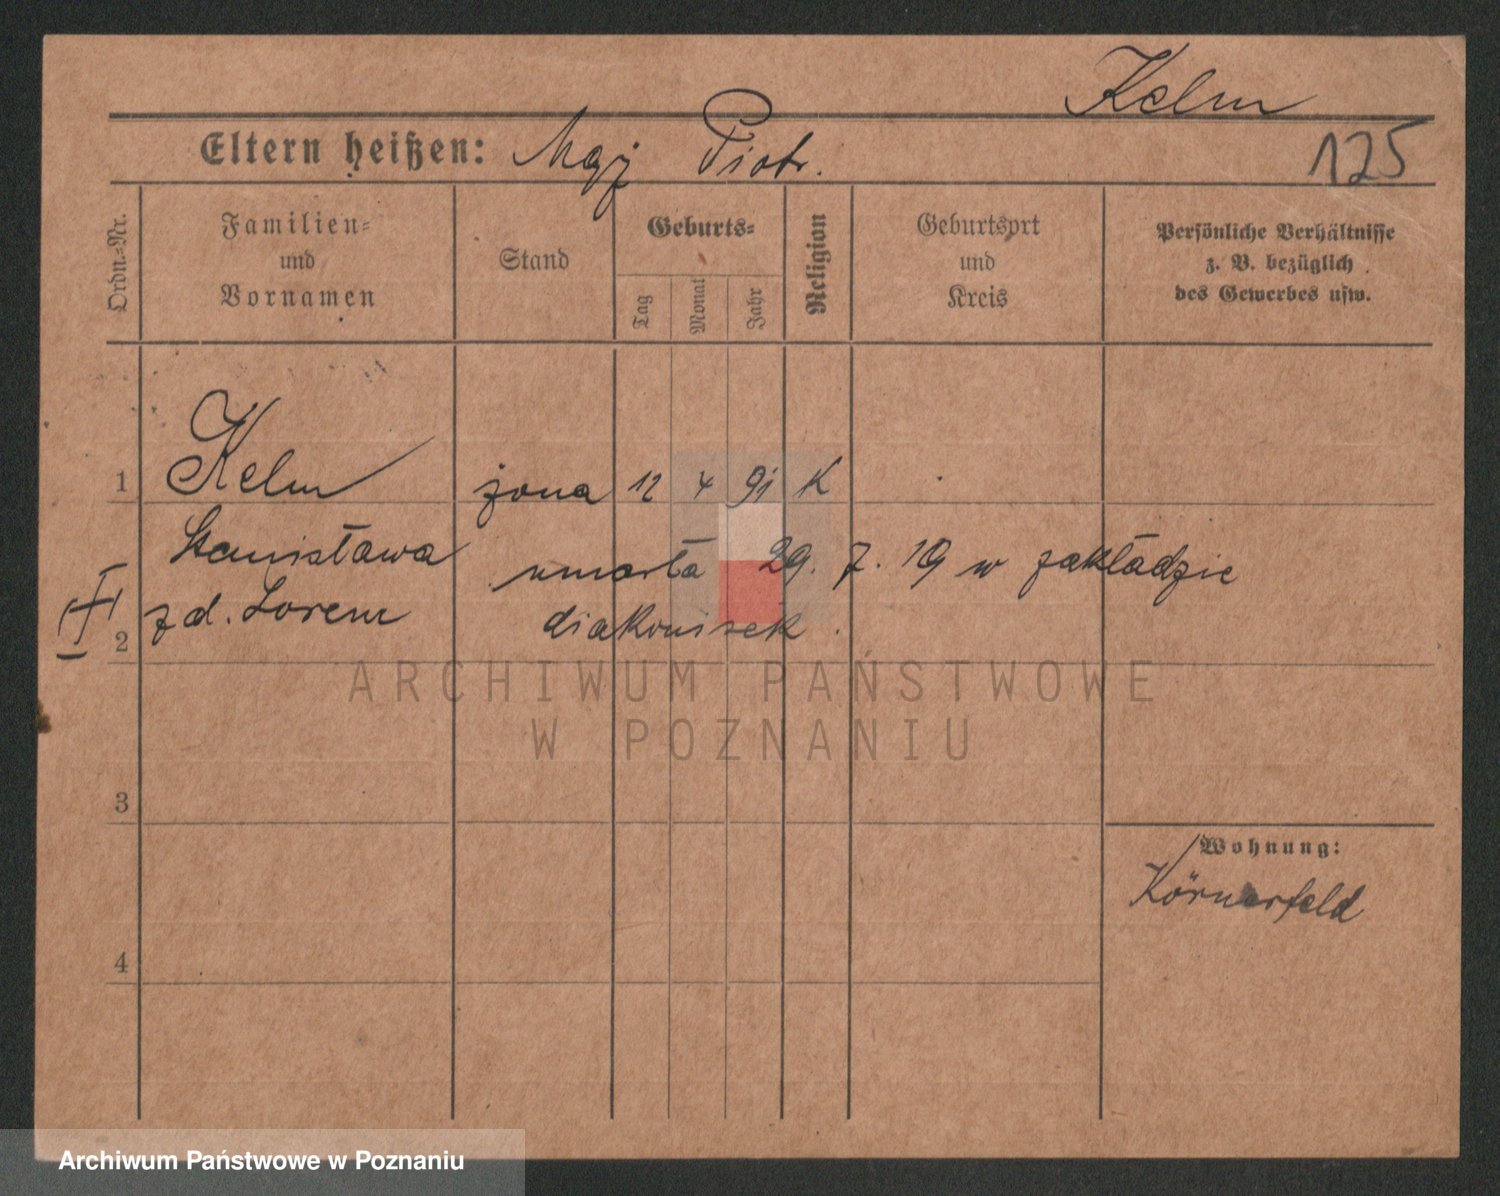 Kelm
Eltern heißen: Mąż Piotr.
125
Ordn.-Nr.
Familien- und Vornamen
Stand
Geburts-
Tag
Monat
Jahr
Religion
Geburtsort und Kreis
Persönliche Verhältnisse
z. B. bezüglich
des Gewerbes usw.
1 Kelm żona 12 4 91 K
Stanisława umarła 29. 7. 19 w zakładzie
2 zd. Lorem diakonisek.
ARCHIWUM PAŃSTWOWE
W POZNANIU
3
Wohnung:
Körnerfeld
4
Archiwum Państwowe w Poznaniu